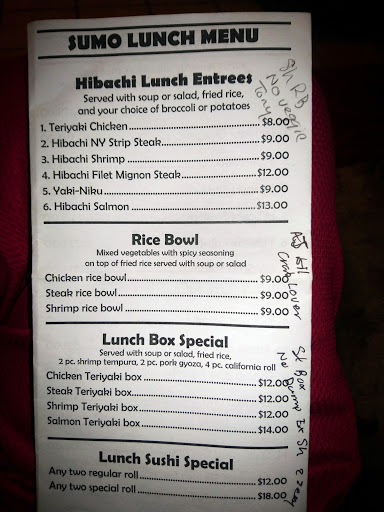 SUMO LUNCH MENU
Hibachi Lunch Entrees
Served with soup or salad, fried rice,
and your choice of broccoli or potatoes
1. Teriyaki Chicken $8.00
2. Hibachi NY Strip Steak $9.00
3. Hibachi Shrimp $9.00
4. Hibachi Filet Mignon Steak $12.00
5. Yaki-Niku $9.00
6. Hibachi Salmon $13.00
Sh RB
No veggie
Rice Bowl
Mixed vegetables with spicy seasoning
on top of fried rice served with soup or salad
Chicken rice bowl $9.00
Steak rice bowl $9.00
Shrimp rice bowl $9.00
Lover
Lunch Box Special
Served with soup or salad, fried rice,
2 pc. shrimp tempura, 2 pc. pork gyoza, 4 pc. california roll
Chicken Teriyaki box $12.00
Steak Teriyaki box $12.00
Shrimp Teriyaki box $12.00
Salmon Teriyaki box $14.00
St Box
No Dump Ex Sh
Lunch Sushi Special
Any two regular roll $12.00
Any two special roll $18.00